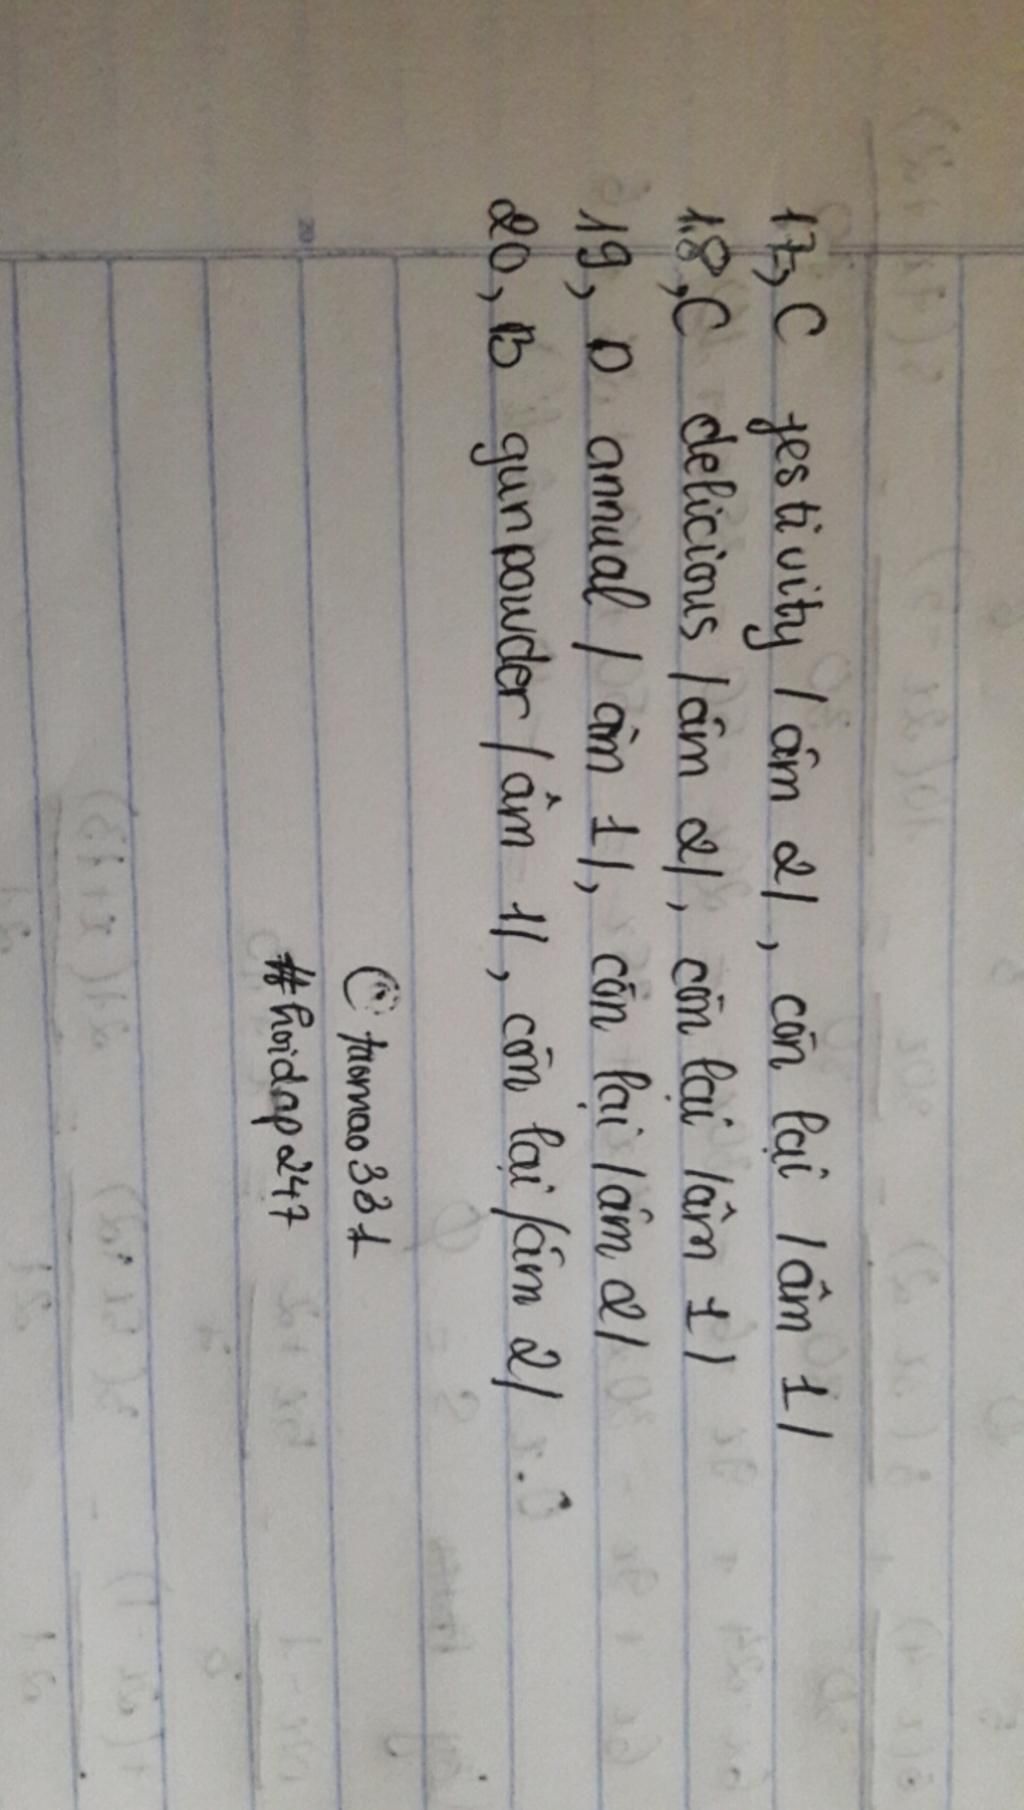 17, C festivity / âm 2/, còn lại /âm 1/
18, C delicious /âm 2/, còn lại /âm 1/
19, D annual / âm 1/, còn lại /âm 2/
20, B gunpowder /âm 1/, còn lại /âm 2/
#hoidap247